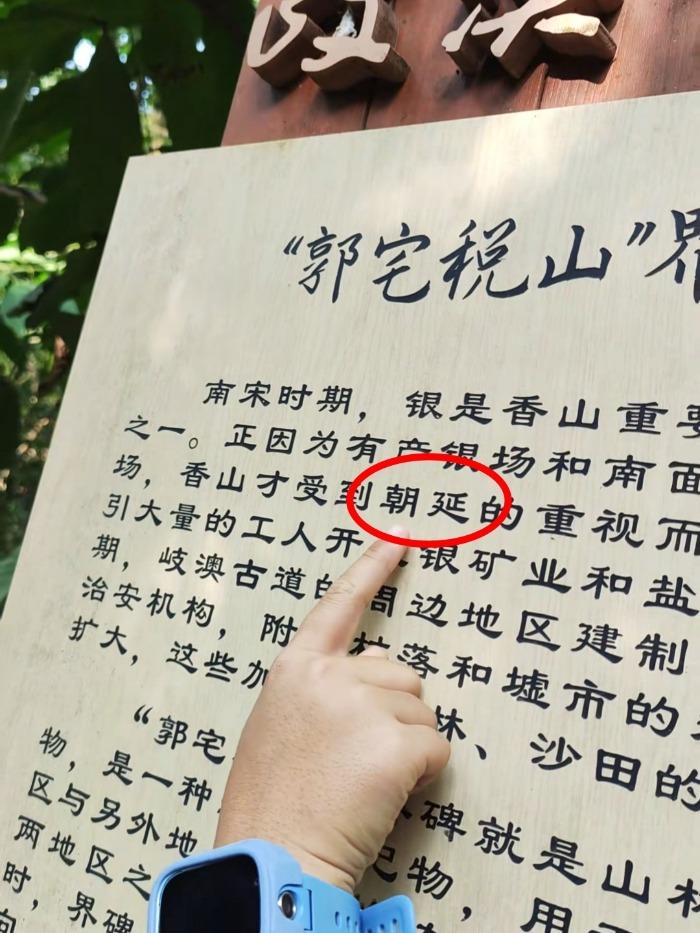 “郭宅税山”界
南宋时期，银是香山重要
之一。正因为有产银场和南面
场，香山才受到朝延的重视而
引大量的工人开 银矿业和盐
期，岐澳古道的周边地区建制
治安机构，附 村落和墟市的
扩大，这些加 林、沙田的
“郭宅 碑就是山林
物，是一种 记物，用
区与另外地
两地区之
时，界碑
向